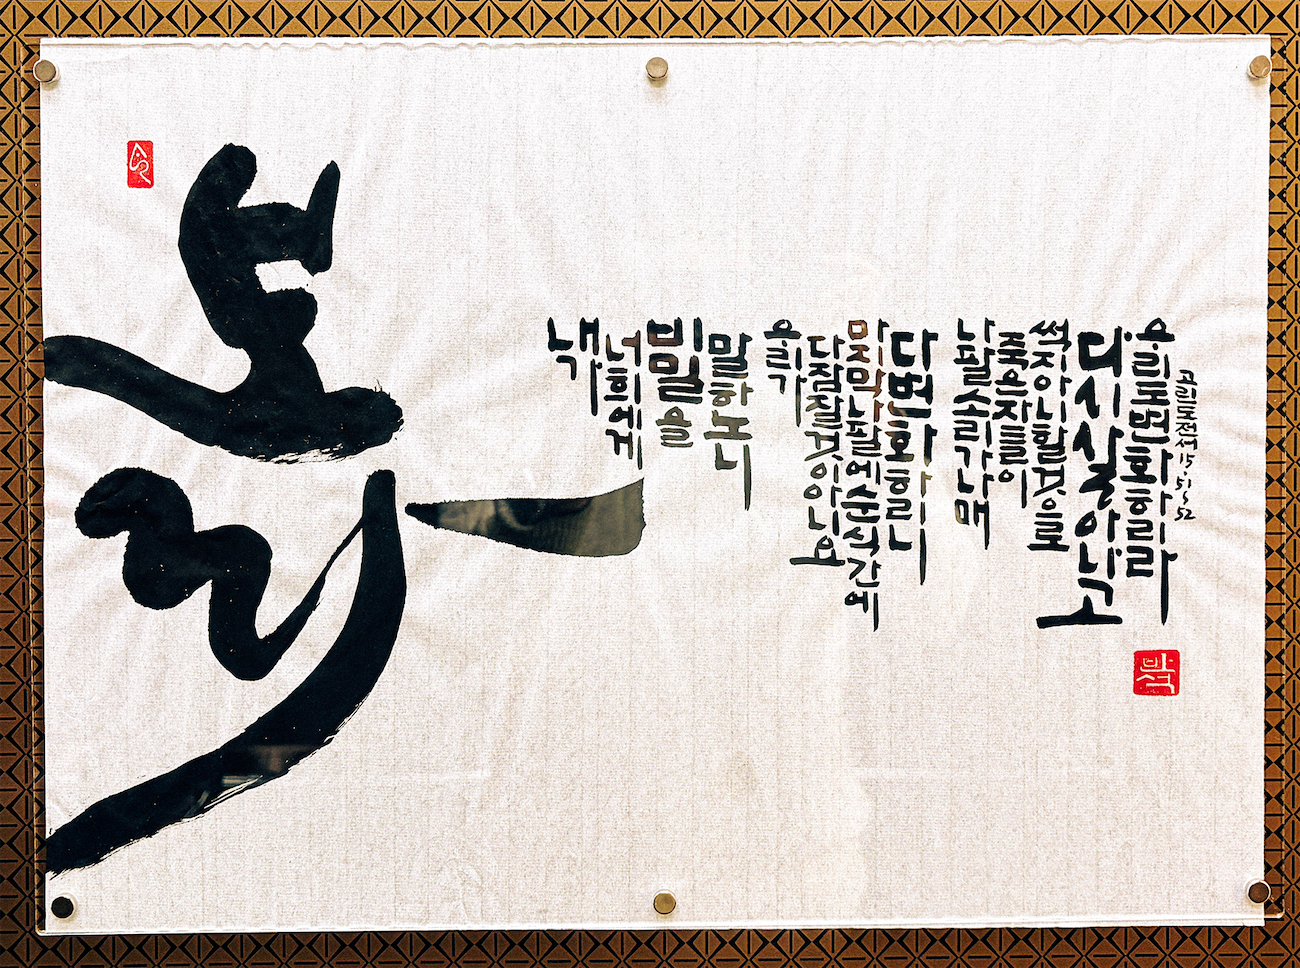 보라
내가
너희에게
비밀을
말하노니
우리가
다 잠잘 것이 아니요
마지막 나팔에 순식간에
다 변화하리니
나팔 소리가 나매
죽은 자들이
썩지 아니할 것으로
다시 살아나고
우리도 변화하리라
고린도전서 15.51~52
박석